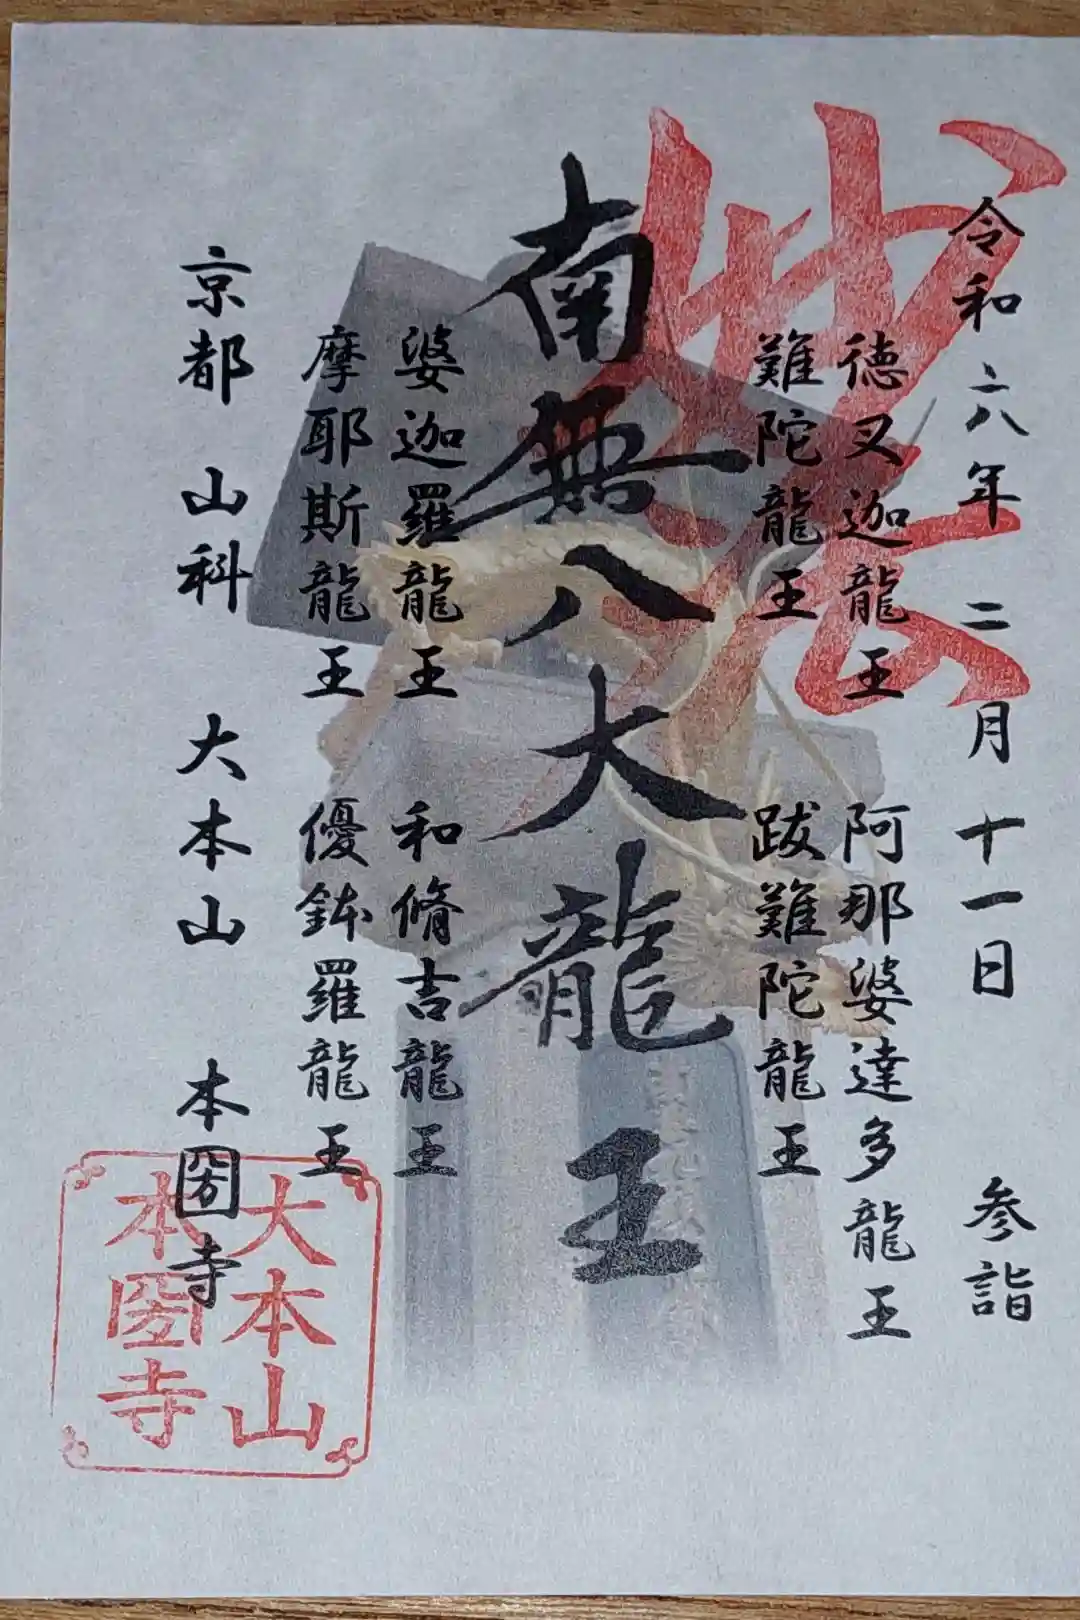 妙法
令和六年 二月 十一日 参詣
徳叉迦龍王 阿那婆達多龍王
難陀龍王 跋難陀龍王
南無八大龍王
婆迦羅龍王 和脩吉龍王
摩耶斯龍王 優鉢羅龍王
京都 山科 大本山 本圀寺
大本山
本圀寺